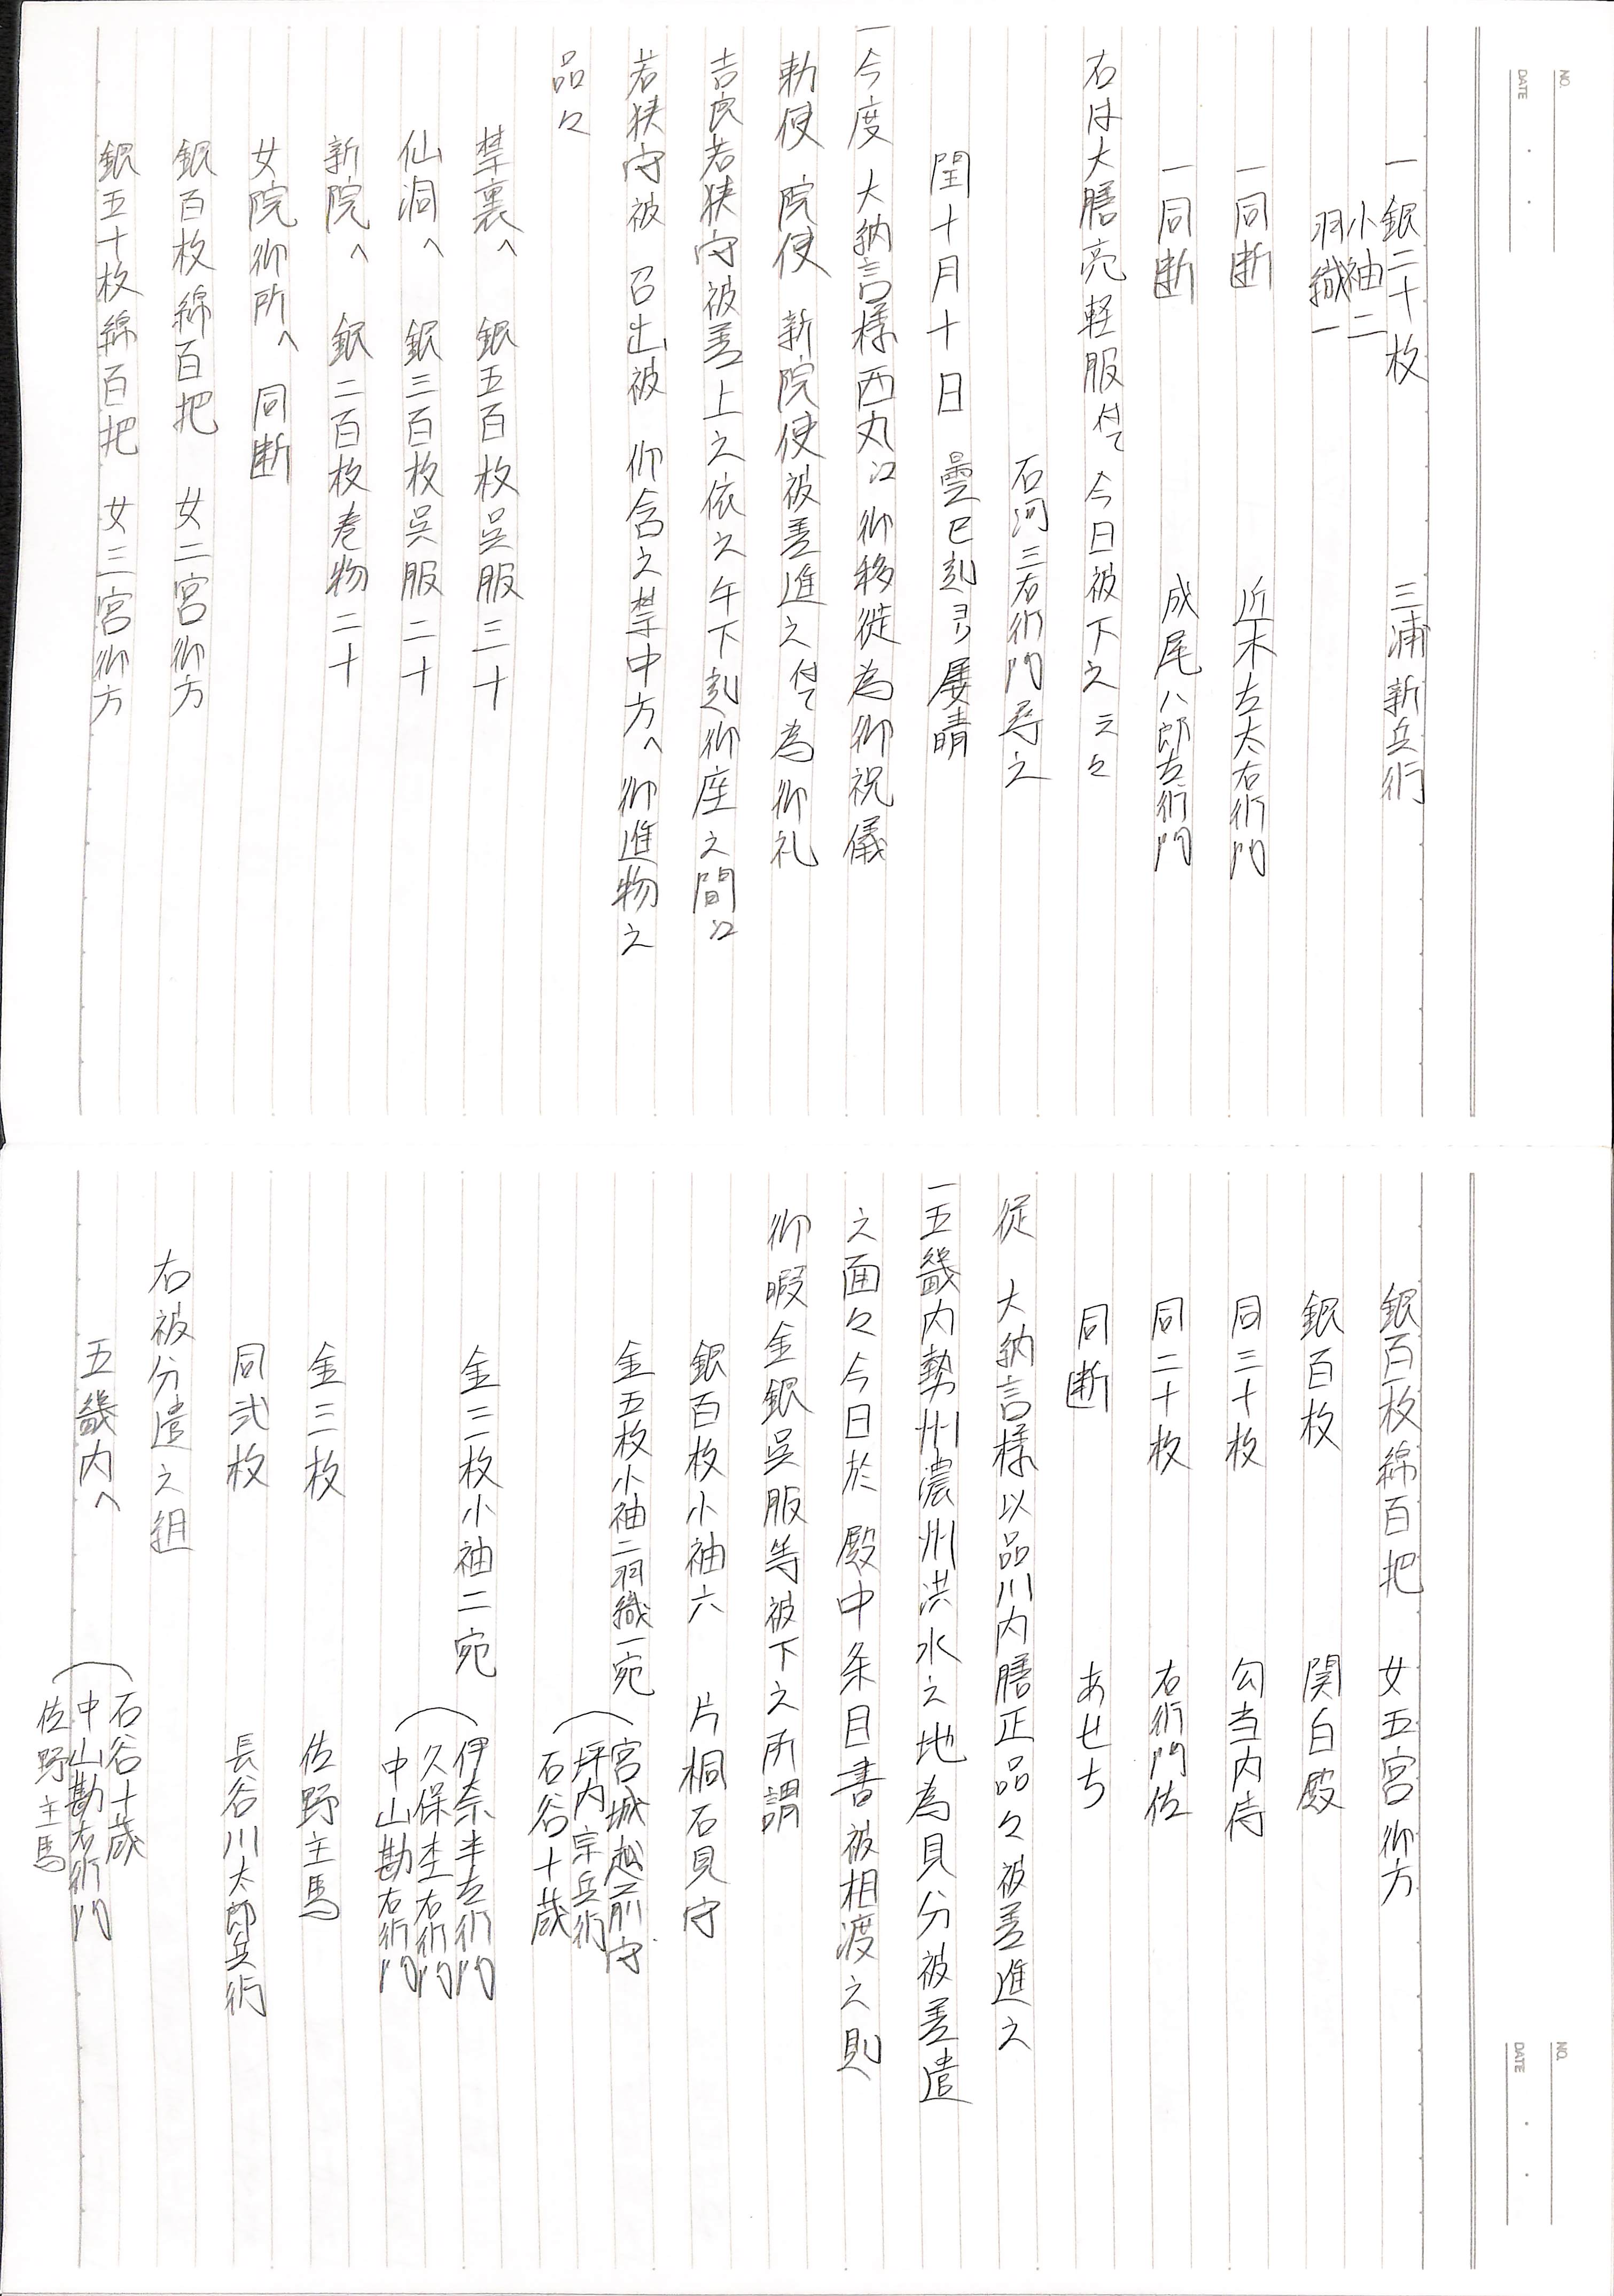 NO.
DATE
一銀二十枚 三浦新兵衛
小袖二
羽織一
一同断 近木左太右衛門
一同断 成尾八郎左衛門
右は大膳亮軽服ニ付て今日被下之云々
石河三右衛門尋之
閏十月十日 曇巳刻ヨリ属晴
一今度 大納言様西丸江御移徙為御祝儀
勅使 院使 新院使被差進之付て為御礼
吉良若狭守被差上之依之午下刻御座之間江
若狭守被 召出被 仰含之禁中方へ御進物之
品々
禁裏へ 銀五百枚呉服三十
仙洞へ 銀三百枚呉服二十
新院へ 銀二百枚巻物二十
女院御所へ 同断
銀百枚綿百把 女二宮御方
銀五十枚綿百把 女三宮御方
NO.
DATE
銀百枚綿百把 女五宮御方
銀百枚 関白殿
同三十枚 勾当内侍
同二十枚 右衛門佐
同断 あせち
従 大納言様以品川内膳正品々被差進之
一五畿内勢州濃州洪水之地為見分被差遣
之面々今日於 殿中条目書被相渡之則
御暇金銀呉服等被下之所謂
銀百枚小袖六 片桐石見守
金五枚小袖二羽織一宛 宮城越前守
坪内宗兵衛
石谷十蔵
金三枚小袖二宛 伊奈半左衛門
久保杢右衛門
中山勘右衛門
金三枚 佐野主馬
同弐枚 長谷川太郎兵衛
右被分遣之組
五畿内へ 石谷十蔵
中山勘右衛門
佐野主馬